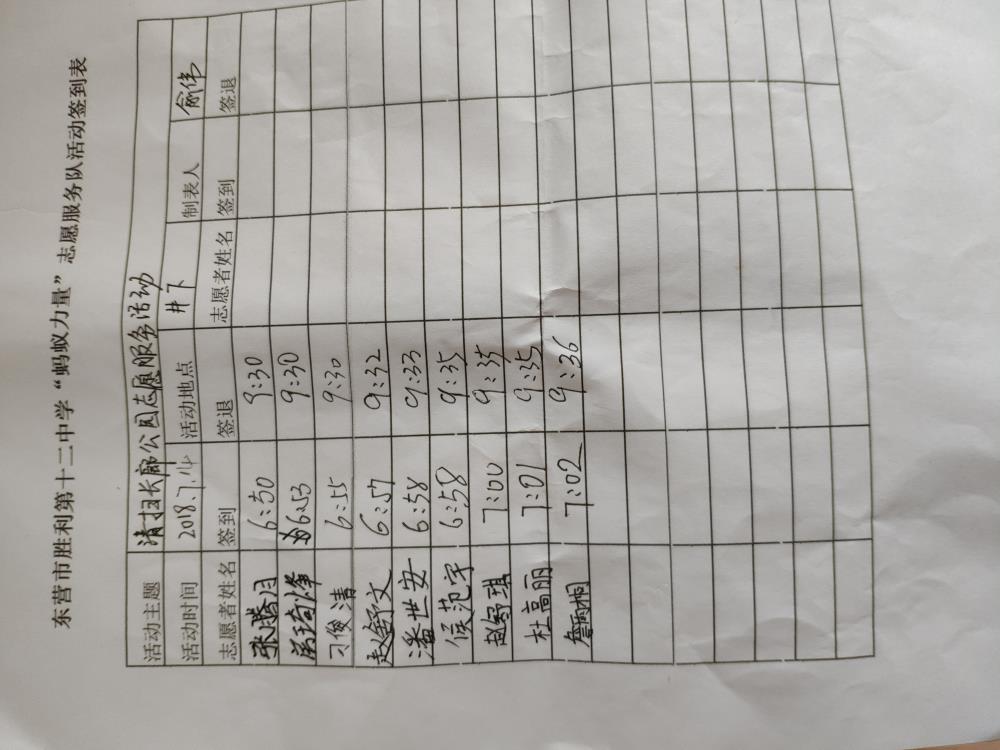 东营市胜利第十二中学“蚂蚁力量”志愿服务队活动签到表
活动主题 清扫长廊公园志愿服务活动
活动时间 2018.7.14 活动地点 井下 制表人 俞伟
志愿者姓名 签到 签退 志愿者姓名 签到 签退
张腾月 6:50 9:30
6:53 9:30
刁俊清 6:55 9:30
赵舒文 6:57 9:32
潘世安 6:58 9:33
侯范宇 6:58 9:35
赵舒琪 7:00 9:35
杜高丽 7:01 9:35
詹雨桐 7:02 9:36